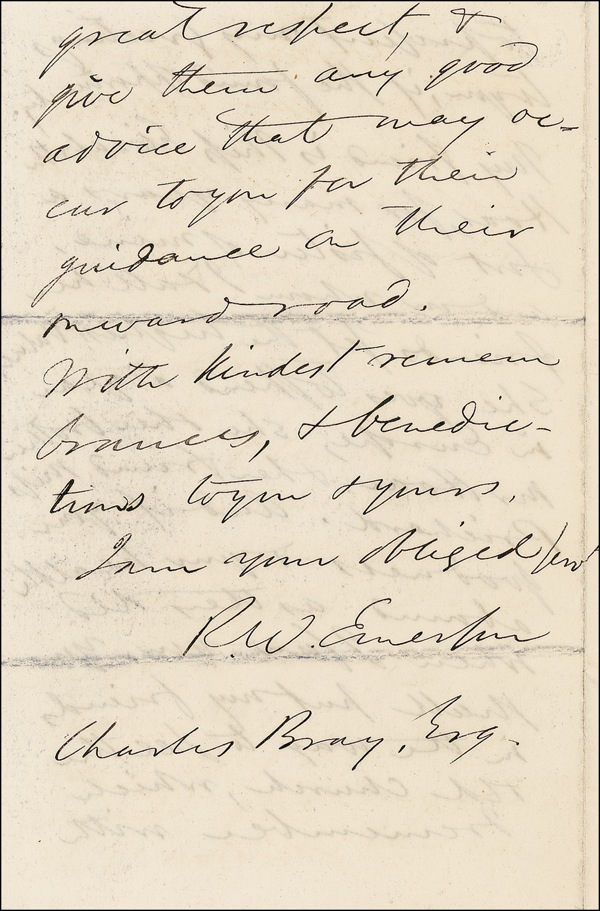 great respect, &
give them any good
advice that may oc-
cur to you for their
guidance on their
onward road.
With kindest remem
brances, & benedic-
tions to you & yours.
I am your obliged serv't
R. W. Emerson
Charles Bray, Esq.